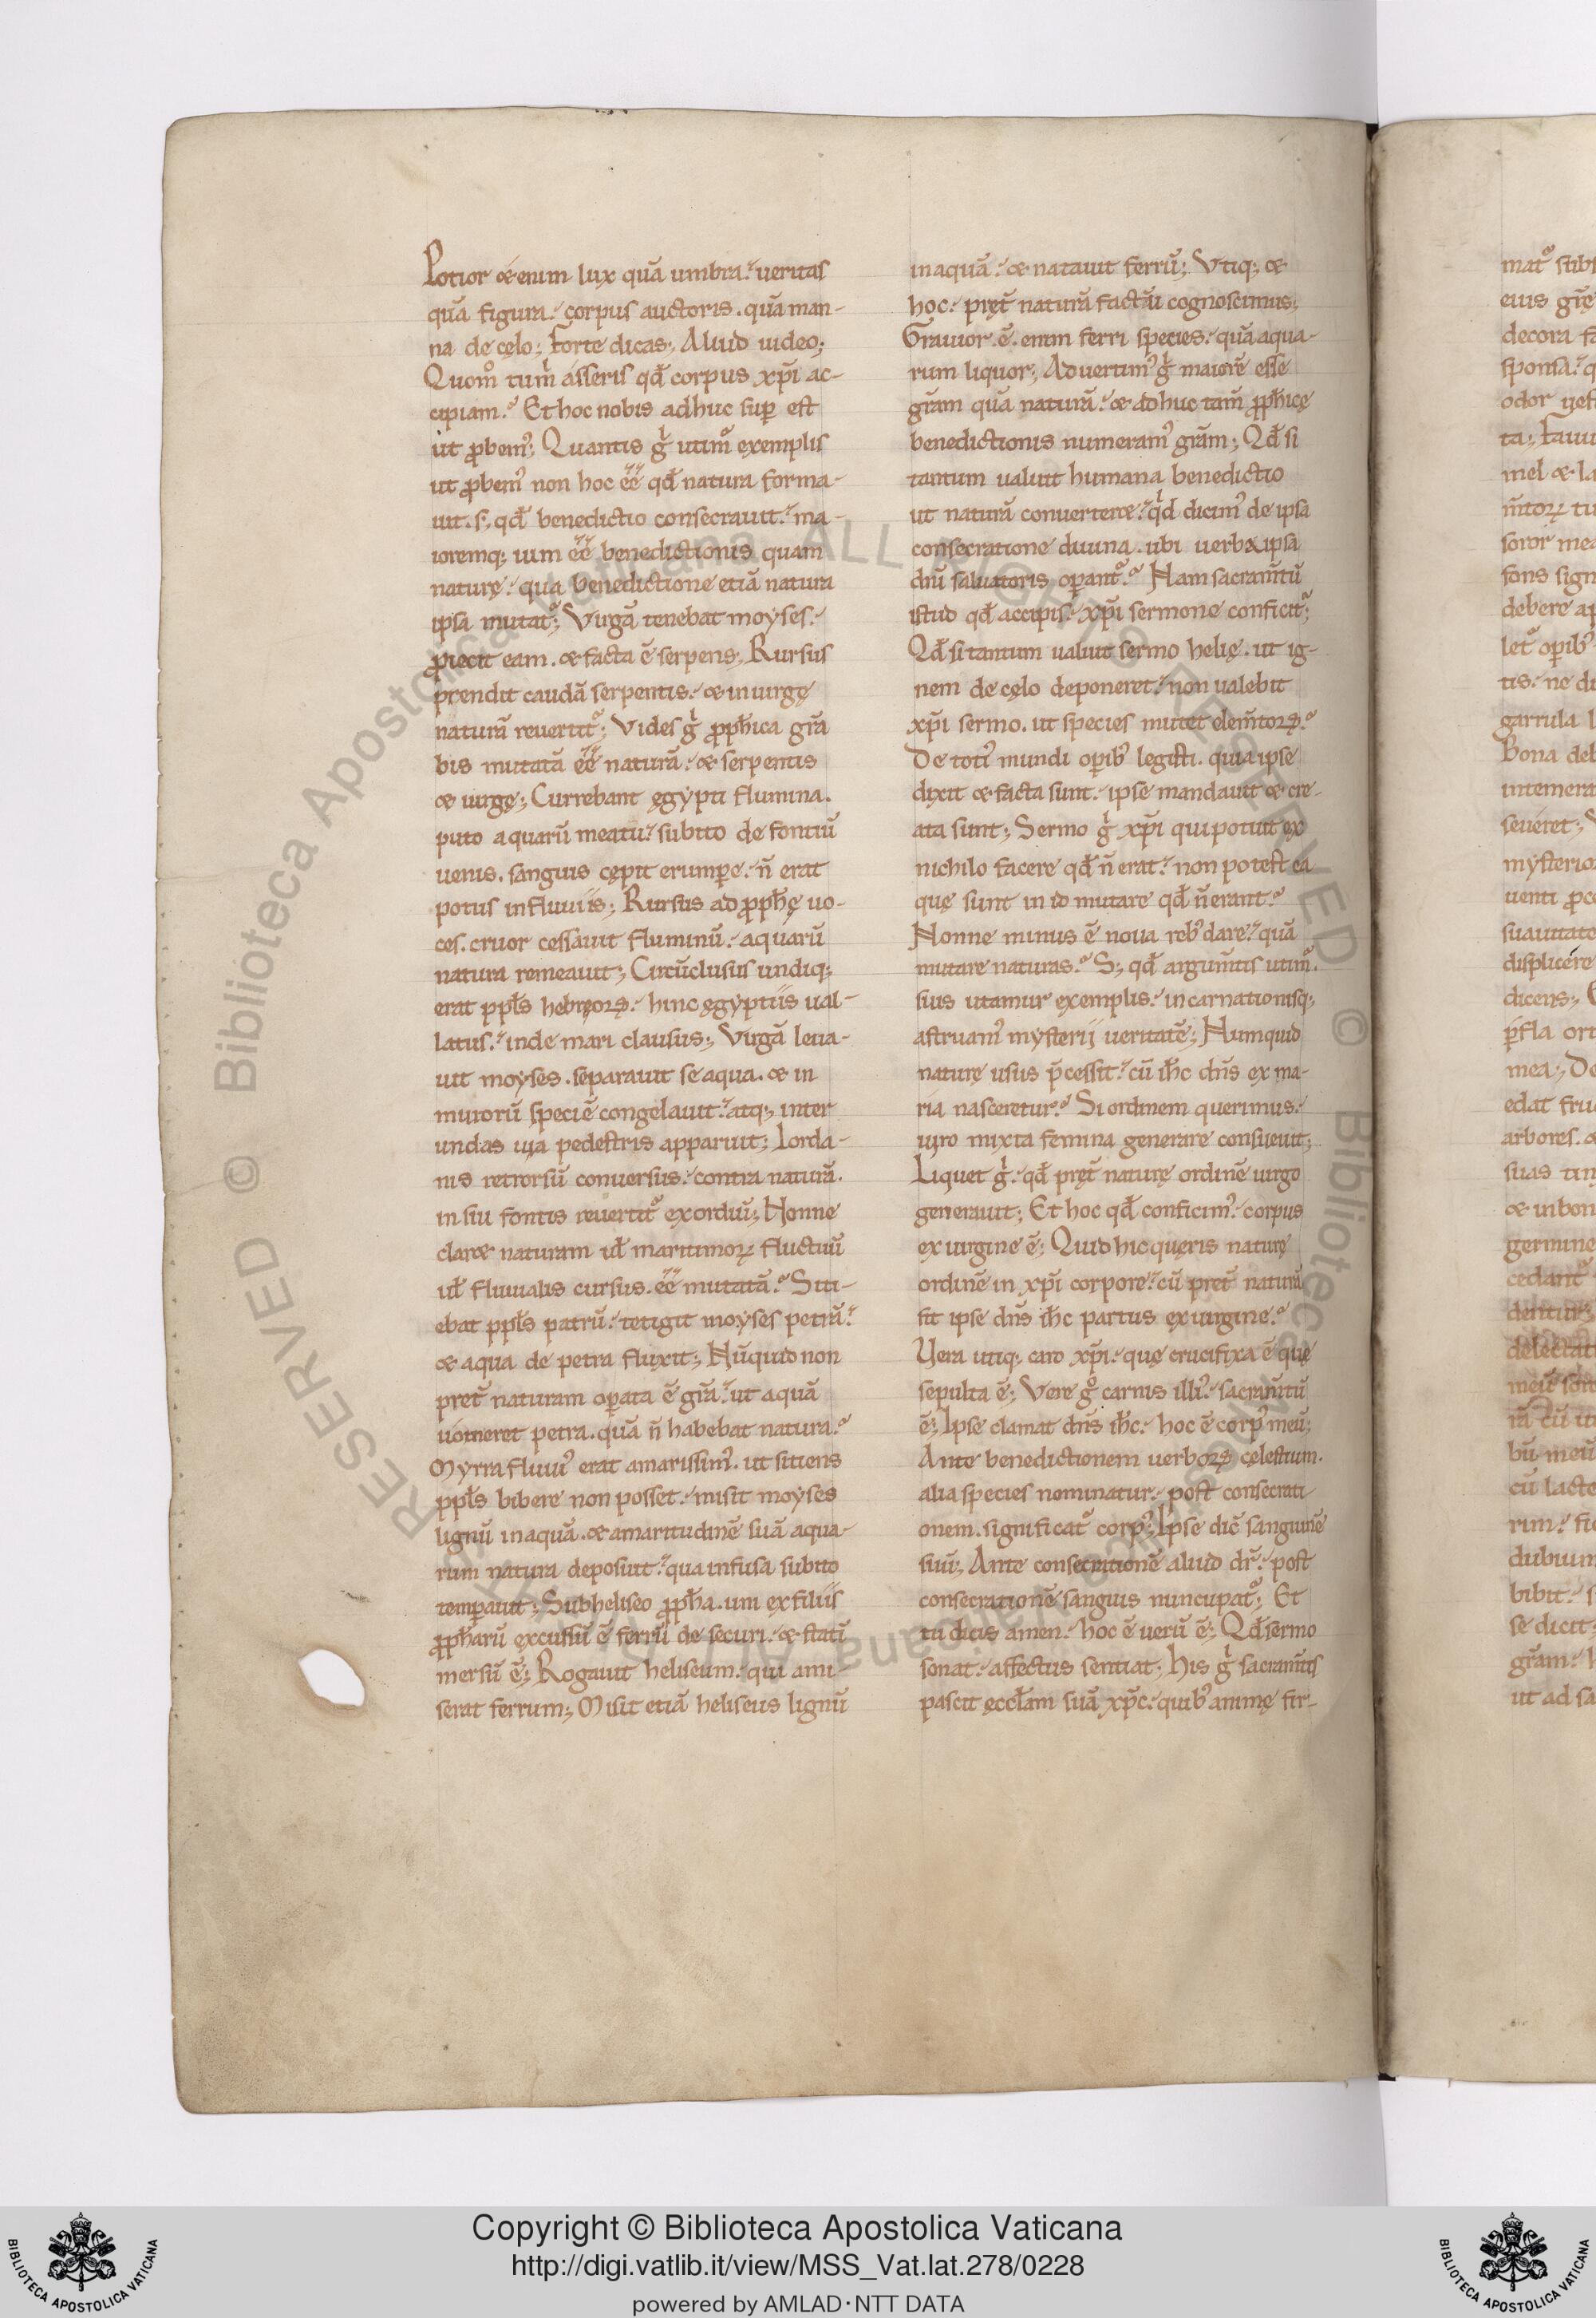 Potior ẽ enim lux quã umbra. ueritas
quã figura. corpus auctoris. quã man-
na de cęlo; Forte dicas; Aliud uideo;
Quom̊ tum̍ asseris qđ corpus xp̃i ac-
cipiam. Et hoc nobis adhuc sup̱ est
ut ꝓbem᷒; Quantis g̍ utim᷒ exemplis
ut ꝓbem᷒ non hoc ẽẽ qđ natura forma-
uit. s; qđ benedictio consecrauit. ma-
ioremq; uim ẽẽ benedictionis quam
naturę. qua benedictione etiã natura
ipsa mutat᷑; Virgã tenebat moyses.
ꝓiecit eam. & facta ẽ serpens; Rursus
prendit caudã serpentis. & in uirgę
naturã reuertit᷑; Vides g̍ ꝓph̃ica gr̃a
bis mutatã ẽẽ naturã. & serpentis
& uirgę; Currebant ęgypti flumina.
puto aquarũ meatu. subito de fontiũ
uenis. sanguis cępit erumꝑe. ñ erat
potus in fluuiis; Rursus ad ꝓph̃ę uo-
ces. cruor cessauit fluminũ. aquarũ
natura remeauit; Circũclusus undiq;
erat ppl̃s hebręorꝝ. hinc ęgyptiis ual-
latus. inde mari clausus; Virgã leua-
uit moyses. separauit se aqua. & in
murorũ speciẽ congelauit. atq; inter
undas uia pedestris apparuit; Iorda-
nis retrorsũ conuersus. contra naturã.
in sui fontis reuertit᷑ exordiũ; Nonne
claret naturam uł maritimoꝝ fluctuũ
uł fluuialis cursus. ẽẽ mutatã. Siti-
ebat ppl̃s patrũ. tetigit moyses petrã.
& aqua de petra fluxit; Nũquid non
pret̃ naturam oꝑata ẽ gr̃a. ut aquã
uomeret petra. quã ñ habebat natura.
Myrra fluui᷒ erat amarissim᷒. ut sitiens
ppl̃s bibere non posset. misit moyses
lignũ in aquã. & amaritudinẽ suã aqua-
rum natura deposuit. qua infusa subito
temperauit; Sub heliseo ꝓph̃a. uni ex filiis
ꝓph̃arũ excussũ ẽ ferrũ de securi. & statĩ
mersũ ẽ; Rogauit heliseum. qui ami-
serat ferrum; Misit etiã heliseus lignũ
in aquã. & natauit ferrũ; Vtiq; &
hoc. pręt̃ naturã factũ cognoscimus;
Grauior. ẽ. enim ferri species. quã aqua-
rum liquor; Aduertim᷒ g̍ maiorẽ esse
gr̃am quã naturã. & adhuc tam̃ ꝓph̃icę
benedictionis numeram᷒ gr̃am; Qđ si
tantum ualuit humana benedictio
ut naturã conuerteret. qͥd dicim᷒ de ipsa
consecratione diuina. ubi uerba ipsa
dñi saluatoris oꝑant᷑. Nam sacram̃tũ
istud qđ accipis. xp̃i sermone conficit᷑;
Qđ si tantum ualuit sermo helię. ut ig-
nem de cęlo deponeret. non ualebit
xp̃i sermo. ut species mutet elem̃torꝝ.
De toti᷒ mundi oꝑib᷒ legisti. quia ipse
dixit & facta sunt. ipse mandauit & cre-
ata sunt; Sermo g̍ xp̃i qui potuit ex
nichilo facere qđ ñ erat. non potest ea
quę sunt in id mutare qđ ñ erant.
Nonne minus ẽ noua reb᷒ dare. quã
mutare naturas. S; qđ argum̃tis utim᷒.
suis utamur exemplis. incarnationisq;
astruam᷒ mysterij ueritatẽ; Numquid
naturę usus p̃cessit. cũ ih̃c dñs ex ma-
ria nasceretur. Si ordinem querimus.
uiro mixta femina generare consueuit;
Liquet g̍. qđ pręt̃ naturę ordinẽ uirgo
generauit; Et hoc qđ conficim᷒. corpus
ex uirgine ẽ; Quid hic quęris naturę
ordinẽ in xp̃i corpore. cũ pret̃ naturã
sit ipse dñs ih̃c partus ex uirgine.
Uera utiq; caro xp̃i. quę crucifixa ẽ quę
sepulta ẽ; Vere gͦ carnis illi᷒. sacram̃tũ
ẽ; Ipse clamat dñs ih̃c. hoc ẽ corp᷒ meũ;
Ante benedictionem uerborꝝ cęlestium.
alia species nominatur. post consecrati-
onem. significat᷑ corp᷒; Ipse dic̃ sanguinẽ
suũ; Ante consecrationẽ aliud dr̃. post
consecrationẽ sanguis nuncupat᷑; Et
tu dicis amen. hoc ẽ uerũ ẽ; Qđ sermo
sonat. affectus sentiat; His g̍ sacram̃tis
pascit ęccłam suã xp̃c. quib᷒ animę fir-
mat᷑ subs
eius gr̃ę
decora fa
sponsa. q
odor uest
ta; Fauu
mel & la
m̃toꝝ tu
soror mea
fons sign
debere ap
let᷑ oꝑib᷒
tis. ne di
garrula l
Bona del
intemera
seueret; V
mysterio
uenti ꝓce
suauitate
displicere
dicens;
ꝑfla ort
mea; De
edat fru
arbores. &
suas tin
& in bon
germine
cedant᷑
dentius
delectati
meũ
rã cũ
bũ meũ
cũ lacte
rim. fi
dubium
bibit. s
se dicit;
gr̃am. h
ut ad sa
Copyright © Biblioteca Apostolica Vaticana
http://digi.vatlib.it/view/MSS_Vat.lat.278/0228
powered by AMLAD·NTT DATA
BIBLIOTECA APOSTOLICA VATICANA
BIBLIOTECA APOSTOLICA VATICANA
RESERVED © Biblioteca Apostolica Vaticana. ALL RIGHTS RESERVED © Biblioteca Apostolica Vaticana ALL RIGHTS